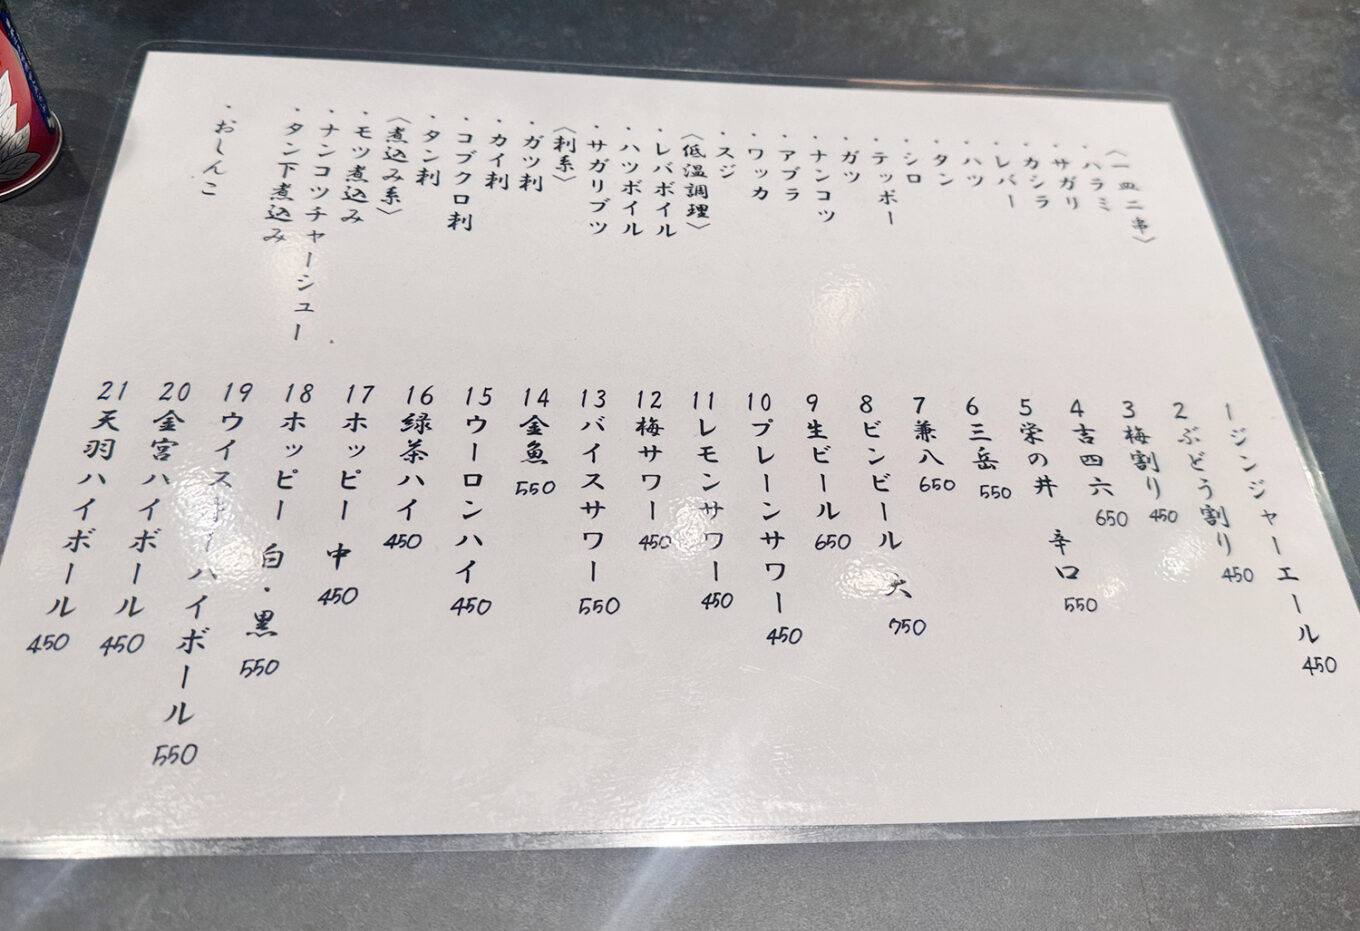 〈一皿二串〉
・ハラミ
・サガリ
・カシラ
・レバー
・ハツ
・タン
・シロ
・テッポー
・ガツ
・ナンコツ
・アブラ
・ワッカ
・スジ
〈低温調理〉
・レバボイル
・ハツボイル
・サガリブツ
〈刺系〉
・ガツ刺
・カイ刺
・コブクロ刺
・タン刺
〈煮込み系〉
・モツ煮込み
・ナンコツチャーシュー
・タン下煮込み
・おしんこ
1 ジンジャーエール 450
2 ぶどう割り 450
3 梅割り 450
4 吉四六 650
5 栄の井 辛口 550
6 三岳 550
7 兼八 650
8 ビンビール 大 750
9 生ビール 650
10 プレーンサワー 450
11 レモンサワー 450
12 梅サワー 450
13 バイスサワー 550
14 金魚 550
15 ウーロンハイ 450
16 緑茶ハイ 450
17 ホッピー 中 450
18 ホッピー 白・黒 550
19 ウイスキーハイボール 550
20 金宮ハイボール 450
21 天羽ハイボール 450